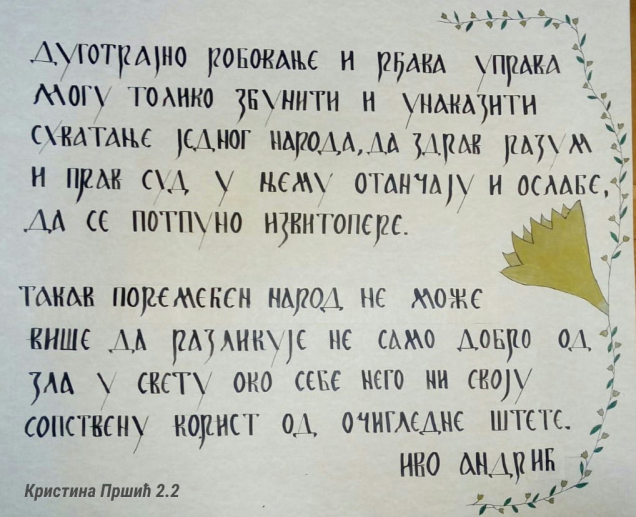 Дуготрајно робовање и рђава управа
могу толико збунити и унаказити
схватање једног народа, да здрав разум
и прав суд у њему отанчају и ослабе,
да се потпуно извитопере.
Такав поремећен народ не може
више да разликује не само добро од
зла у свету око себе него ни своју
сопствену корист од очигледне штете.
Иво Андрић
Кристина Пршић 2.2